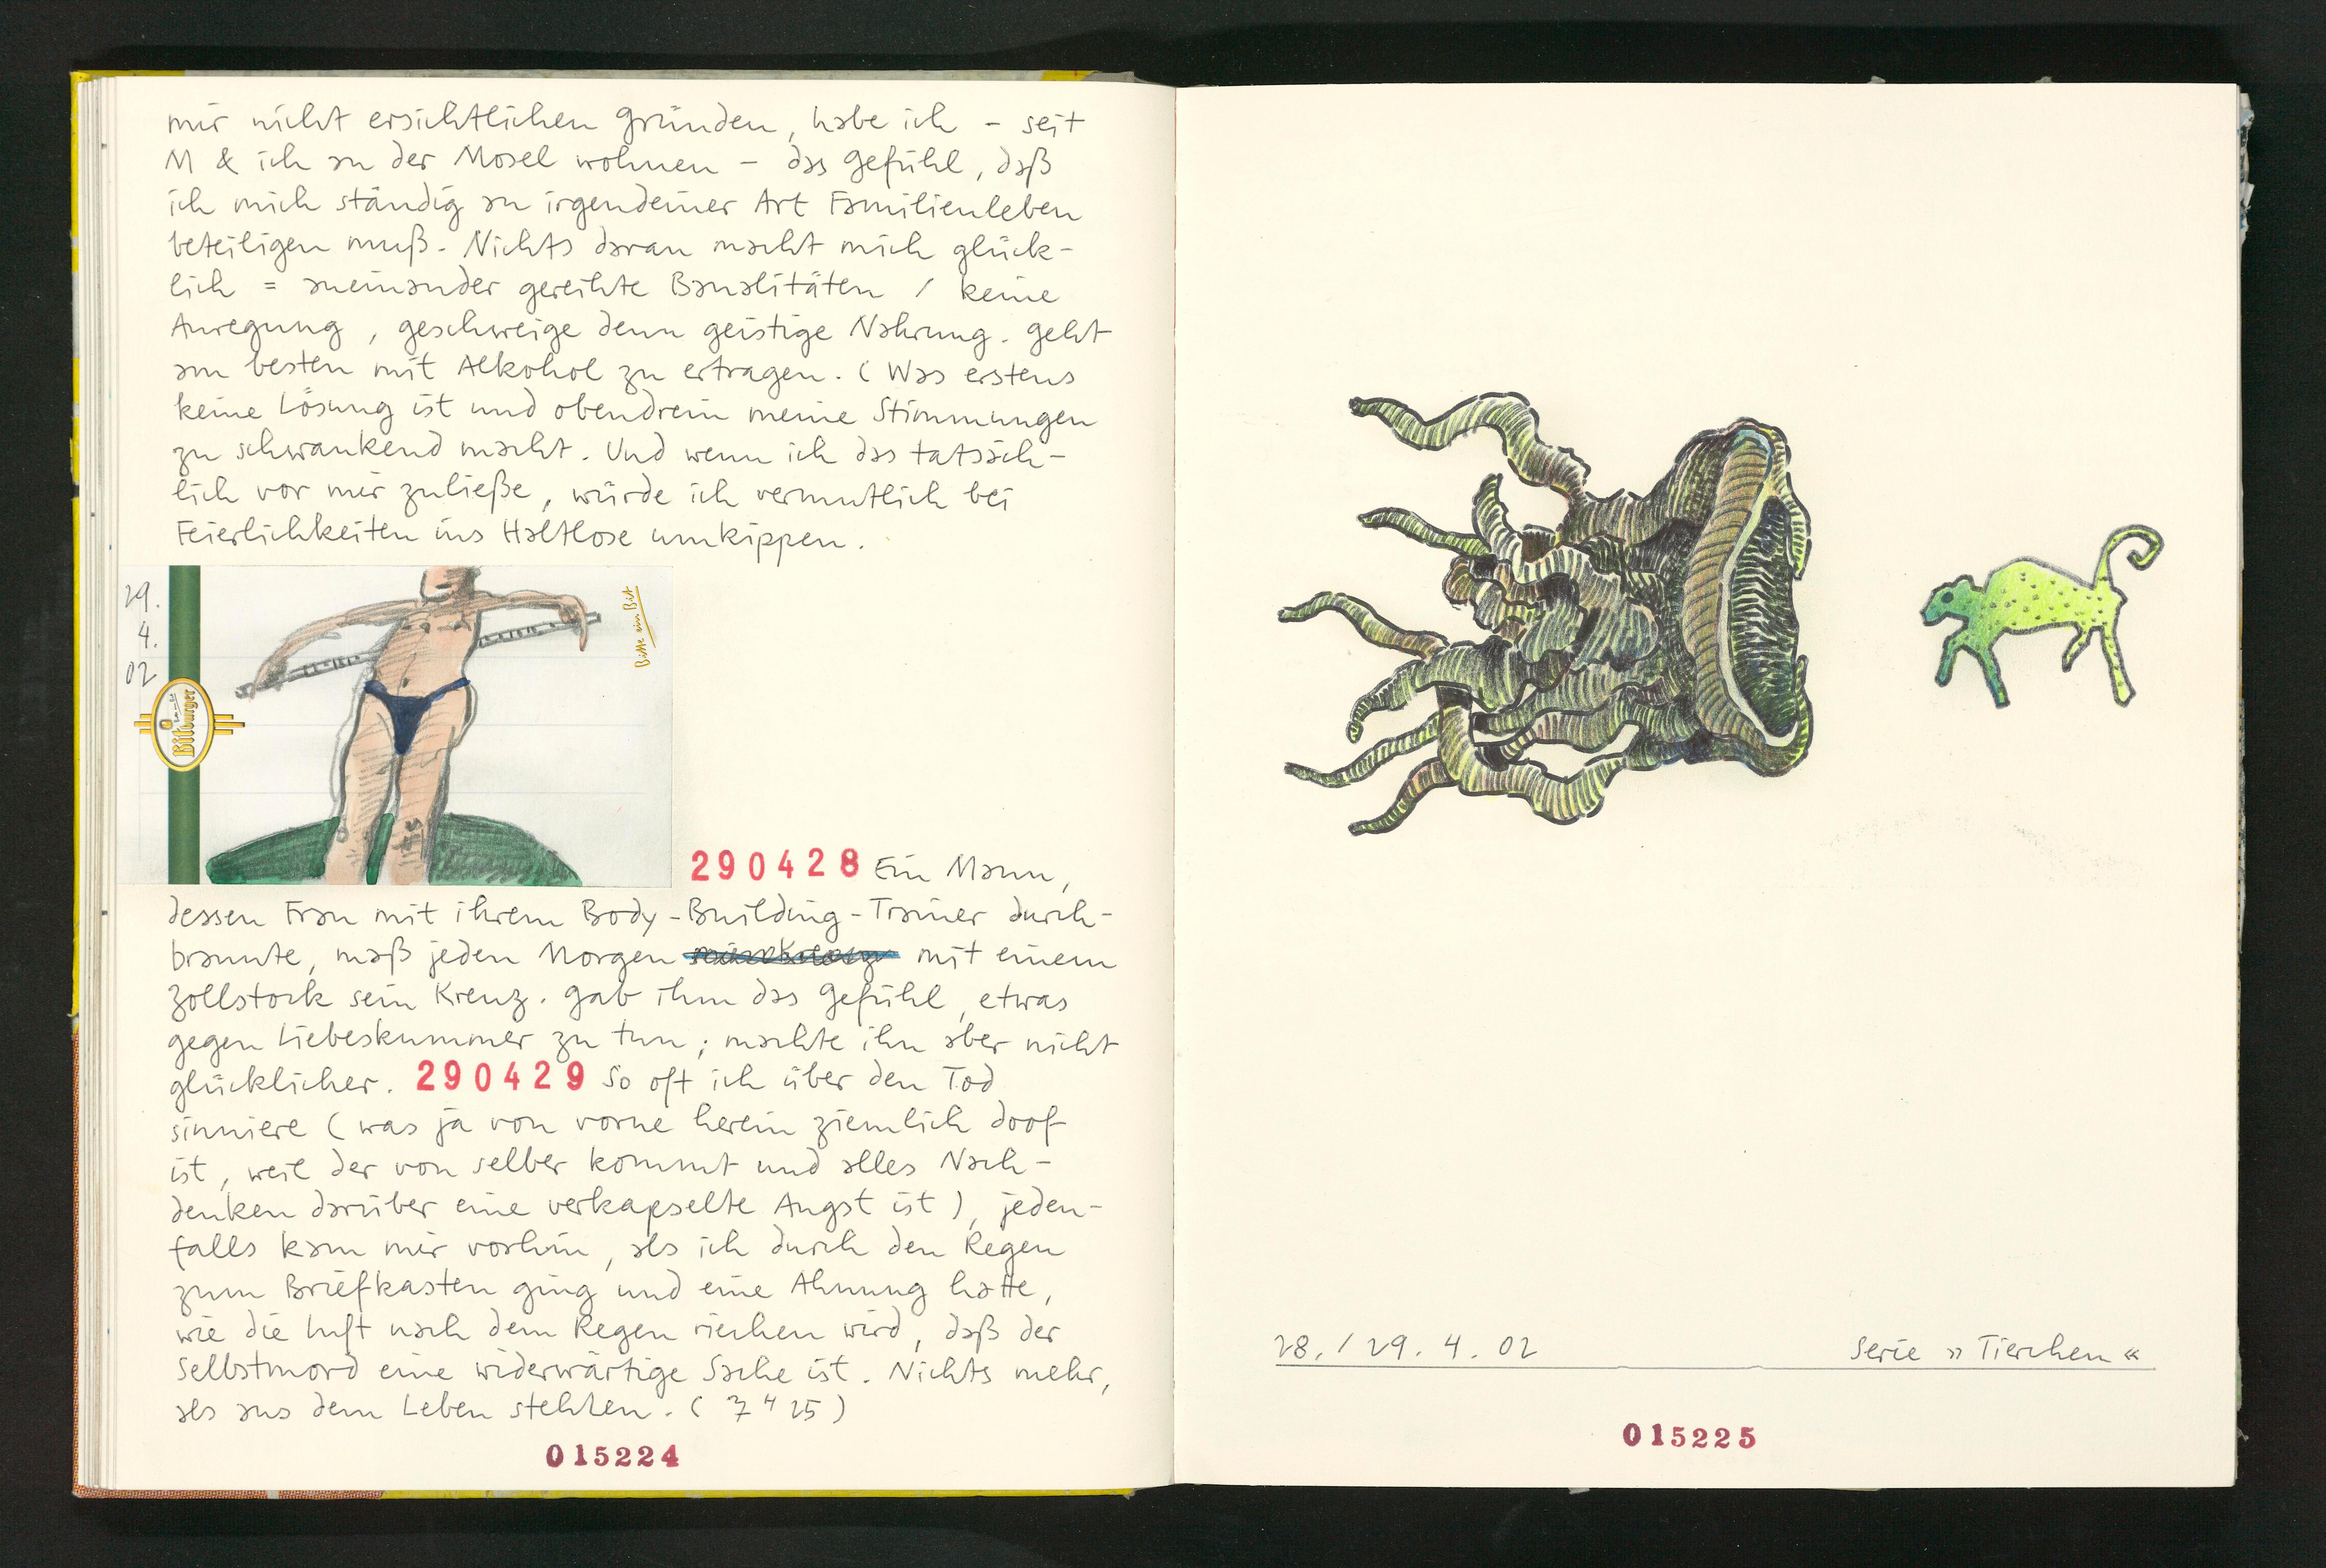 mir nicht ersichtlichen Gründen, habe ich - seit
M & ich an der Mosel wohnen - das Gefühl, daß
ich mich ständig an irgendeiner Art Familienleben
beteiligen muß. Nichts daran macht mich glück-
lich = aneinander gereihte Banalitäten / keine
Anregung, geschweige denn geistige Nahrung. Geht
am besten mit Alkohol zu ertragen. (Was erstens
keine Lösung ist und obendrein meine Stimmungen
zu schwankend macht. Und wenn ich das tatsäch-
lich vor mir zuließe, würde ich vermutlich bei
Feierlichkeiten ins Haltlose umkippen.
29.
4.
02
Bitte ein Bit
Bitburger
290428 Ein Mann,
dessen Frau mit ihrem Body-Building-Trainer durch-
brannte, maß jeden Morgen mit einem
Zollstock sein Kreuz. Gab ihm das Gefühl, etwas
gegen Liebeskummer zu tun; machte ihn aber nicht
glücklicher. 290429 So oft ich über den Tod
sinniere (was ja von vorne herein ziemlich doof
ist, weil der von selber kommt und alles Nach-
denken darüber eine verkapselte Angst ist), jeden-
falls kam mir vorhin, als ich durch den Regen
zum Briefkasten ging und eine Ahnung hatte,
wie die Luft nach dem Regen riechen wird, daß der
Selbstmord eine widerwärtige Sache ist. Nichts mehr,
als aus dem Leben stehlen. (7 4 25)
015224
28. / 29. 4. 02 Serie »Tierchen«
015225